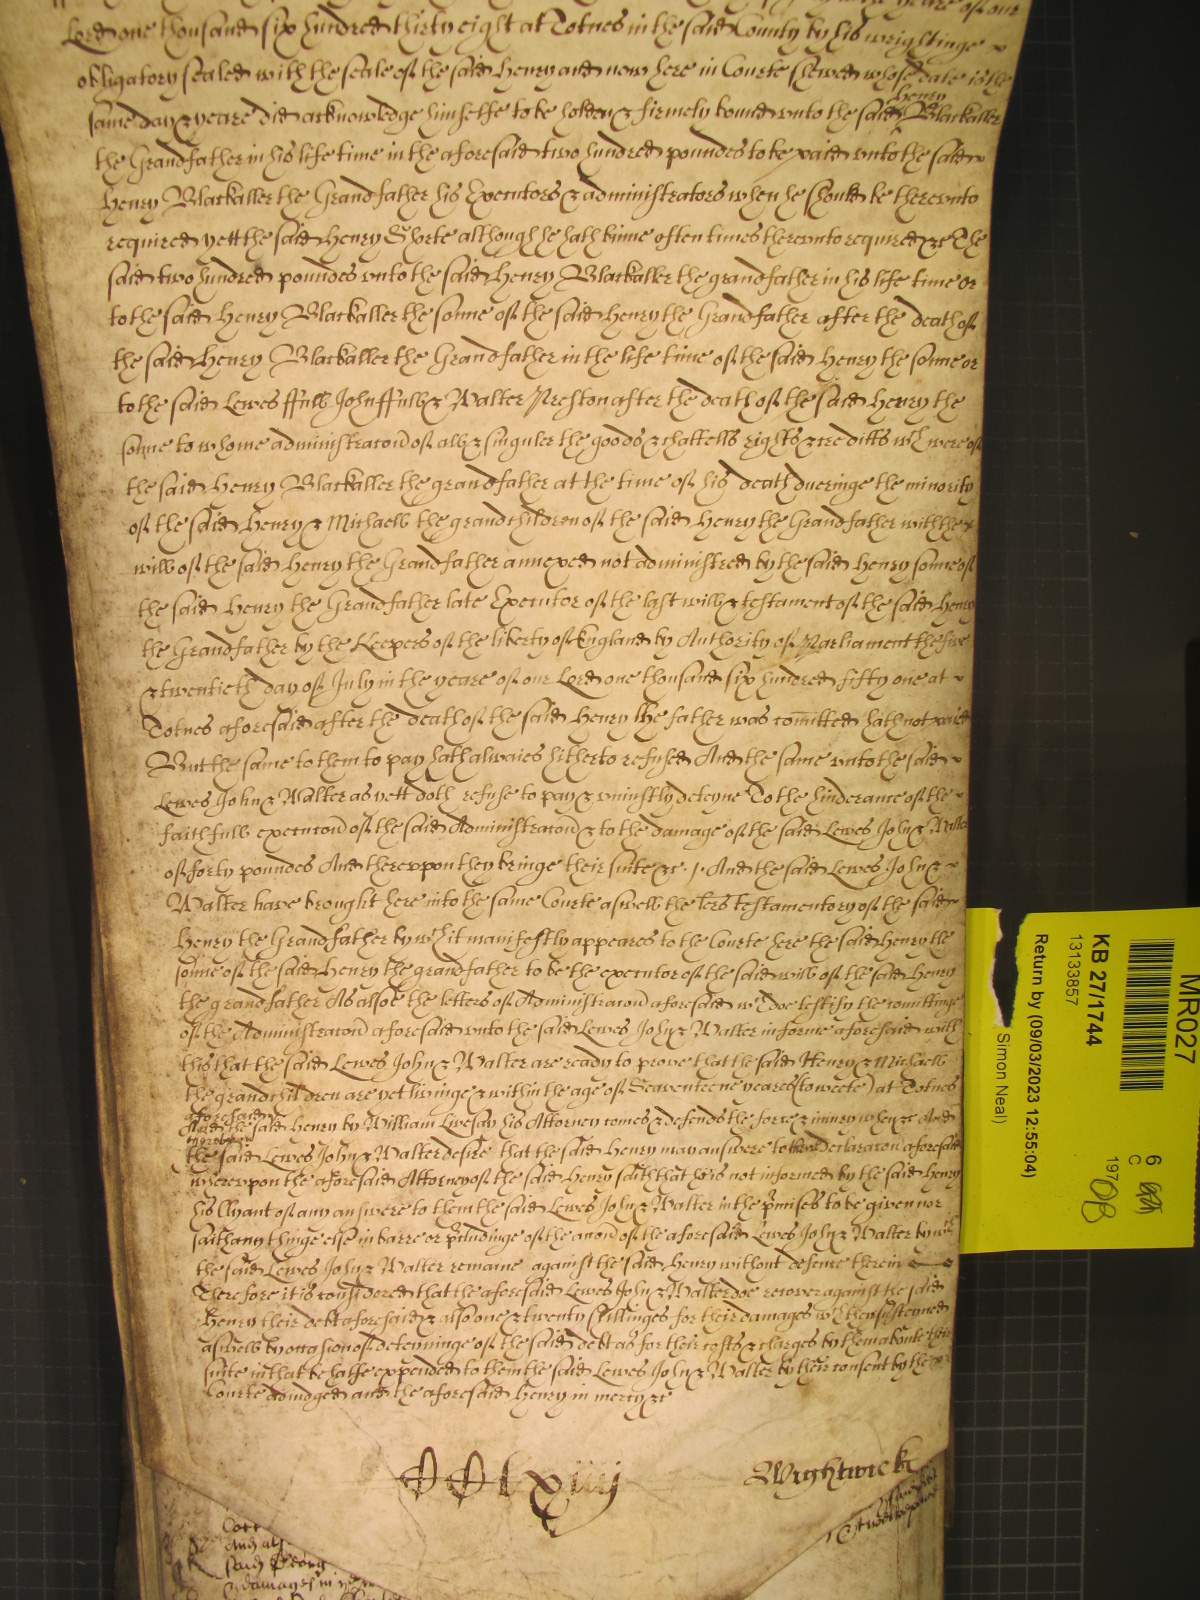 yeare of our
Lord one thousand six hundred thirty eight at Totnes in the said County by his wrightinge
obligatory sealed with the seale of the said Henry and now here in Courte shewed whose date is the
same day & yeare did acknowledge himselfe to be holden & firmely bound unto the said Henry Blackaller
the Grandfather in his life time in the aforesaid two hundred poundes to be paid unto the said
Henry Blackaller the Grandfather his Executors & administrators when he should be thereunto
required yett the said Henry Shorte although he hath binne often times thereunto required &c The
said two hundred poundes unto the said Henry Blackaller the grandfather in his life time or
to the said Henry Blackaller the sonne of the said Henry the Grandfather after the death of
the said Henry Blackaller the Grandfather in the life time of the said Henry the sonne or
to the said Lewes ffull John ffull & Walter Preston after the death of the said Henry the
sonne to whome administracon of all & singuler the goods & chattells rights & creditts wch were of
the said Henry Blackaller the grandfather at the time of his death dueringe the minority
of the said Henry & Michaell the grandchildren of the said Henry the Grandfather with the
will of the said Henry the Grandfather annexed not administred by the said Henry sonne of
the said Henry the Grandfather late Executor of the last will & testament of the said Henry
the Grandfather by the Keepers of the liberty of England by Authority of Parliament the five
& twentieth day of July in the yeare of our Lord one thousand six hundred fifty one at
Totnes aforesaid after the death of the said Henry the father was comitted hath not paied
But the same to them to pay hath alwaies hitherto refused And the same unto the said
Lewes John & Walter as yett doth refuse to pay & uniustly deteyne To the hinderance of the
faithfull execucon of the said Administracon & to the damage of the said Lewes John & Walter
of forty poundes And thereuppon they bringe their suite &c And the said Lewes John &
Walter have brought here into the same Courte aswell the lres Testamentory of the said
Henry the Grandfather by wch it manifestly appeares to the Courte here the said Henry the
sonne of the said Henry the grandfather to be the executor of the said will of the said Henry
the grandfather As alsoe the letters of Administracon aforesaid wch doe testify the comittinge
of the Administracon aforesaid unto the said Lewes John & Walter in forme aforesaid with
this that the said Lewes John & Walter are ready to prove that the said Henry & Michaell
the grandchildren are yet livinge & within the age of Seaventeene yeares (to weete) at Totnes
aforesaid
And the said Henry by William Livesay his Attorney comes & defends the force & iniury when &c And
thereupon
the said Lewes John & Walter desire that the said Henry may answere to their Declaracon aforesaid
whereupon the aforesaid Attorney of the said Henry saith that he is not informed by the said Henry
his Clyant of any answere to them the said Lewes John & Walter in the pmises to be given nor
saith any thinge else in barre or pcludinge of the accon of the aforesaid Lewes John & Walter by wch
the said Lewes John & Walter remaine against the said Henry without defence therein
Therefore it is considered that the aforesaid Lewes John & Walter doe recover against the said
Henry their debt aforesaid & also one & twenty shillinges for their damages wch they susteyned
aswell by occasion of deteyninge of the said debt as for their costs & charges by them aboute their
suite in that behalfe expended to them the said Lewes John & Walter by their consent by the
Courte adiudged and the aforesaid Henry in mercy &c
Wightwick
Cott
And als
said Georg
damages in
MR027
6
C
197
KB 27/1744
13133857
Return by (09/03/2023 12:55:04)
Simon Neal)